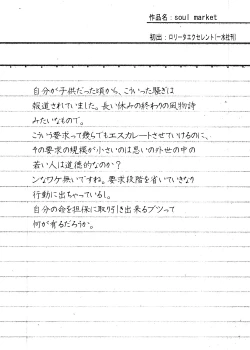 作品名：soul market
初出：ロリータエクセレント(一水社刊)
自分が子供だった頃から、こういった騒ぎは
報道されていました。長い休みの終わりの風物詩
みたいなもので。
こういう要求って幾らでもエスカレートさせていけるのに、
今の要求の規模が小さいのは思いの外世の中の
若い人は道徳的なのか？
ンなワケ無いですね。要求段階を省いていきなり
行動に出ちゃっているし。
自分の命を担保に取り引き出来るブツって
何が有るだろうか。